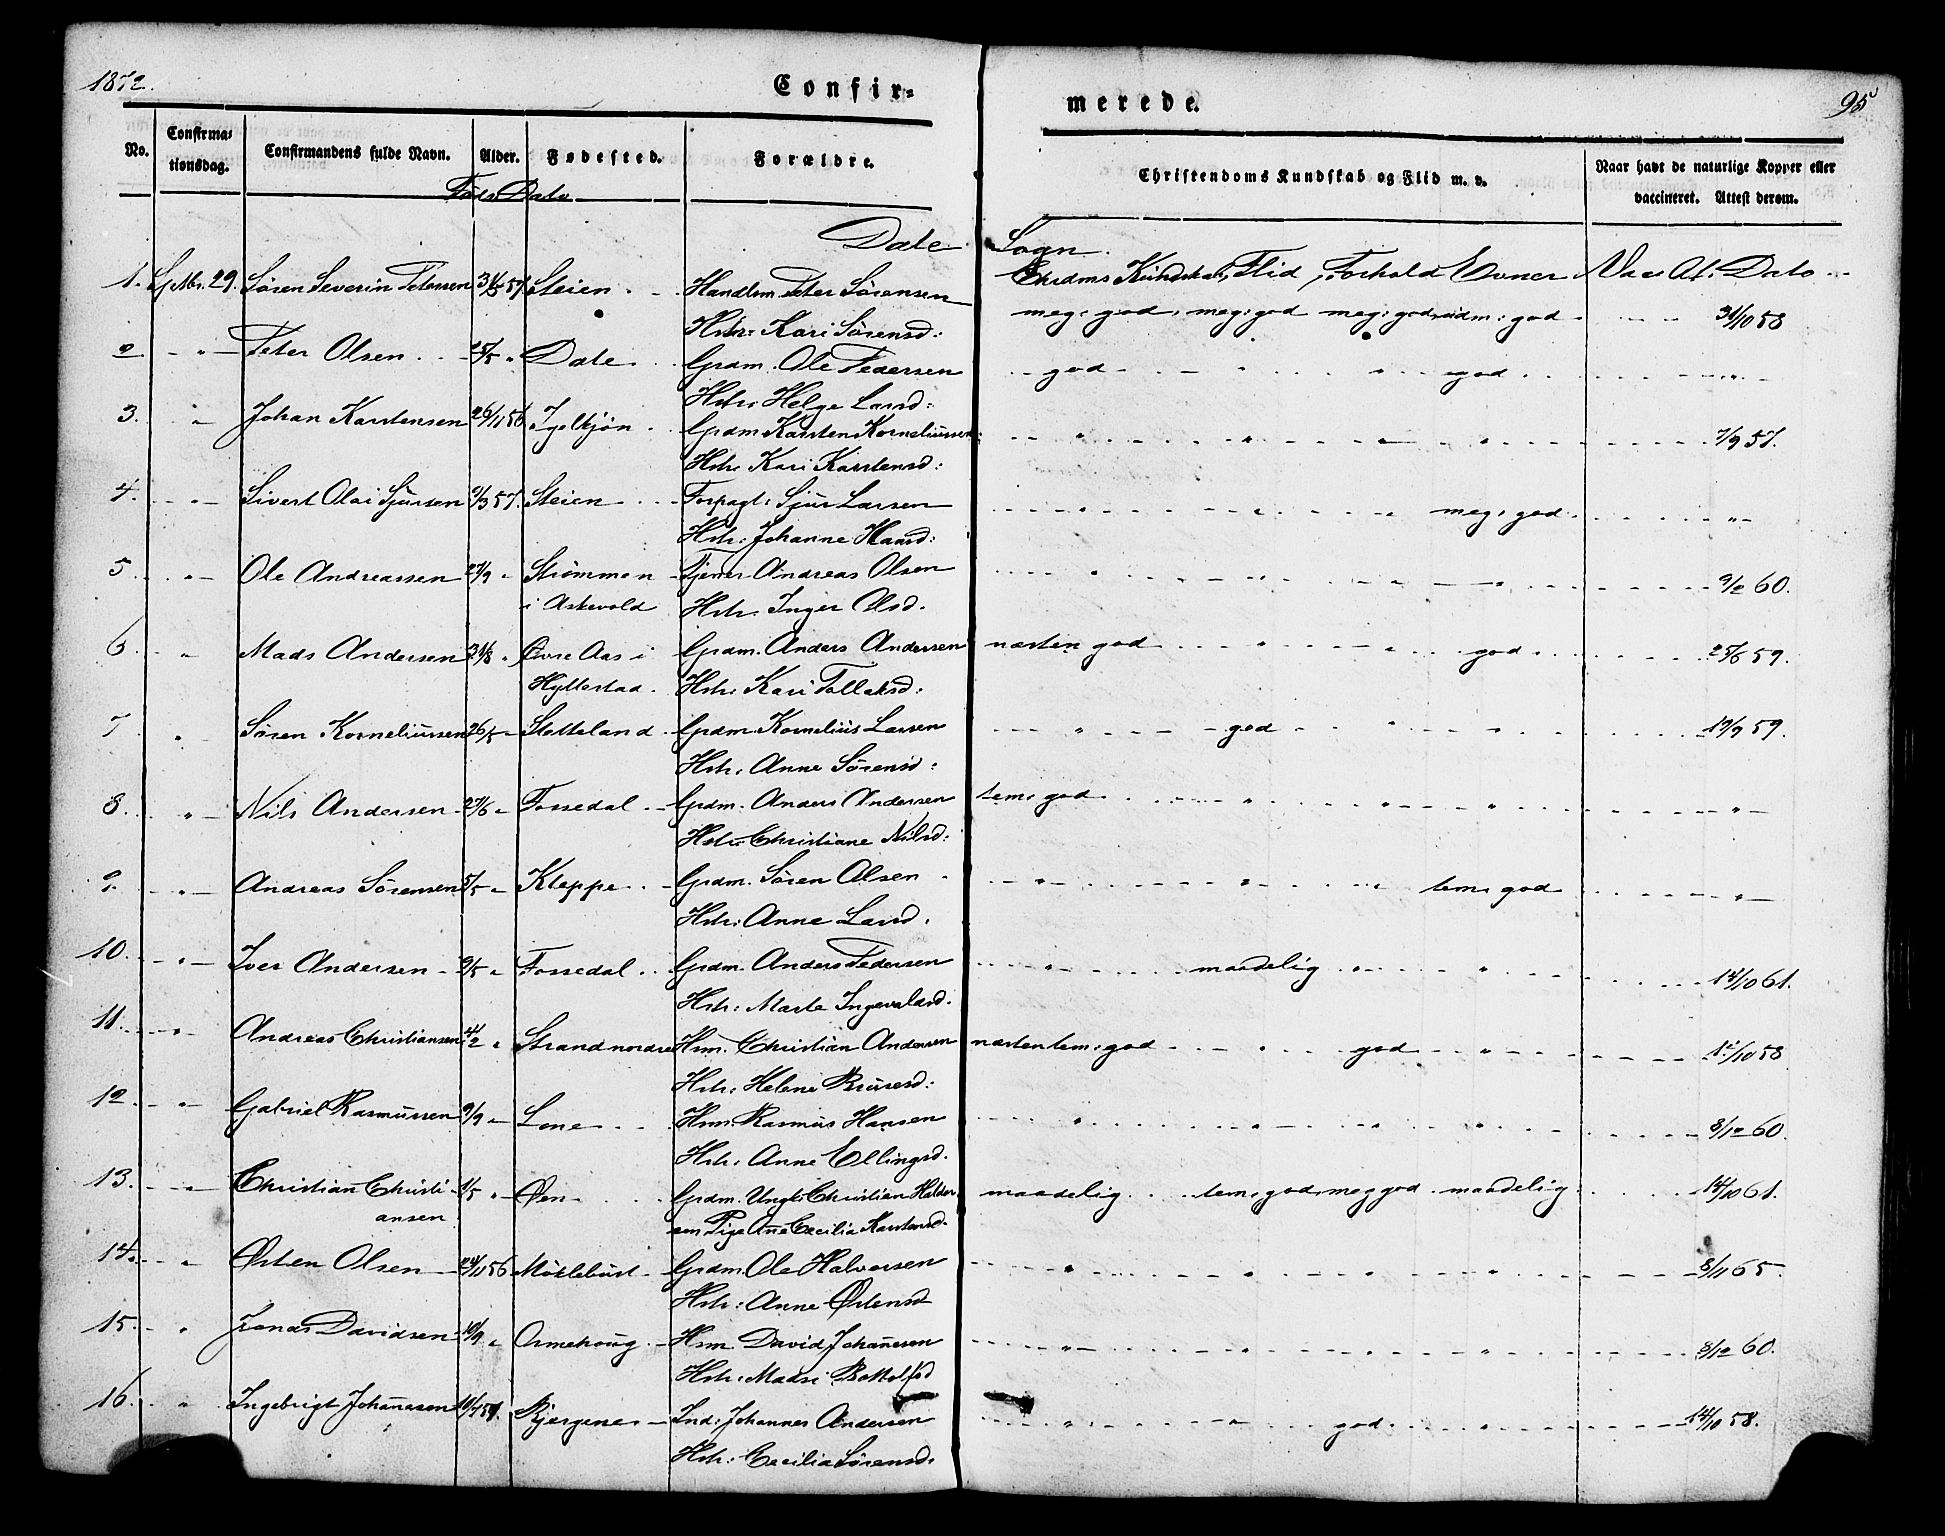 1872.
Confir-
merede.
95
No.
Confirma-
tionsdag.
Confirmandens fulde Navn.
Alder.
Fødested.
Forældre.
Christendoms Kundskab og Flid m. v.
Naar havt de naturlige Kopper eller
vaccineret. Attest derom.
Føds Dato
Dale Sogn.
Chrdms Kundskab, Flid, Forhold Evner Vacc At: Dato
1. Septbr. 29. Søren Severin Petersen 57. Steien Handlsm. Peter Sørensen
Hstr: Kari Sørensd: meg: god meg: god meg: god god 31/10 58
2 " Peter Olsen 25/5 " Dale Grdm. Ole Pedersen god " " god "
Hstr: Helge Larsd:
3. " Johan Karstensen 26/11 56 Igelkjøn Grdm Karsten Korneliussen " " " " 7/9 57.
Hstr. Kari Karstensd:
4. " Sivert Olai Sjursen 9/3 57. Steien Forpagt: Sjur Larsen " " " meg: god. "
Hstr: Johanne Hansd:
5 " Ole Andreassen 27/9 " Strømmen Tjener Andreas Olsen " " " " 9/10 60.
i Askevold Hstr. Inger Olsd.
6 " Mads Andersen 31/8 " Øvre Aas i Grdm. Anders Andersen næsten god " " god 25/6 59.
Hyllestad. Hstr: Kari Tollaksd:
7 " Søren Korneliussen 26/5 " Stetteland Grdm. Kornelius Larsen " god " " 19/9 59.
Hstr: Anne Sørensd:
8. " Nils Andersen 27/6 " Fossedal Grdm. Anders Andersen tem: god " " " "
Hstr: Christiane Nilsd:
9. " Andreas Sørensen 5/5 " Kleppe Grdm. Søren Olsen " " " tem: god "
Hstr: Anne Larsd.
10. " Iver Andersen 9/5 " Fossedal Grdm. Anders Pedersen " maadelig " " 14/10 61.
Hstr: Marte Ingevaldsd.
11. " Andreas Christiansen 4/2 " Strand nordre Hsm. Christian Andersen næsten tem: god " god " 12/10 58
Hstr: Helene Brusesd:
12 " Gabriel Rasmussen 9/9 " Lone Hsm. Rasmus Hansen " " " " 8/10 60.
Hstr: Anne Ellingsd.
13. " Christian Christi- 1/5 " Øen Grdm. Ungk: Christian Halder maadelig tem: god meg god maadelig 14/10 61.
ansen Pige Ane Cecilia Karstensd.
14. " Østen Olsen 24/11 56 Møklebust Grdm Ole Halvorsen " " " " 8/11 65.
Hstr: Anne Østensd
15. " Jonas Davidsen 10/9 " Ormehoug Hsm David Johanesen " " " " 8/10 60.
Hstr: Madsi Bottolfsd
16. " Ingebrigt Johanesen 10/4 57. Bjergene Ind: Johannes Andersen " " god " 14/10 58.
Hstr: Cecilia Sørensd.